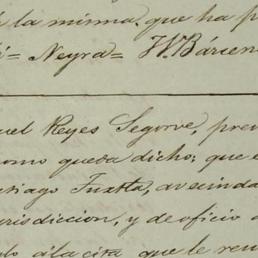 á la misma, que ha p
Neyra= W. Bárcen
uel Reyes Segorve, prev
como queda dicho; que e
tiago Tuxtla, avecinda
urisdiccion, y de oficio
á la cita que le resu